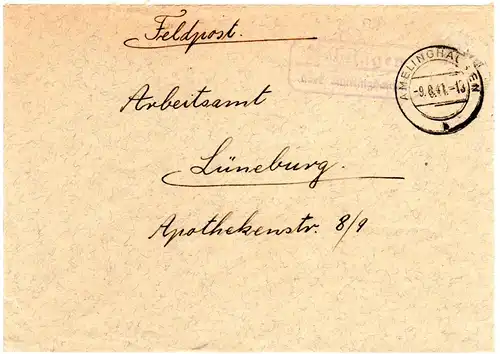 Feldpost.
über Amelinghausen
AMELINGHAUSEN
-9.8.41.-13
b
Arbeitsamt
Lüneburg.
Apothekenstr. 8/9